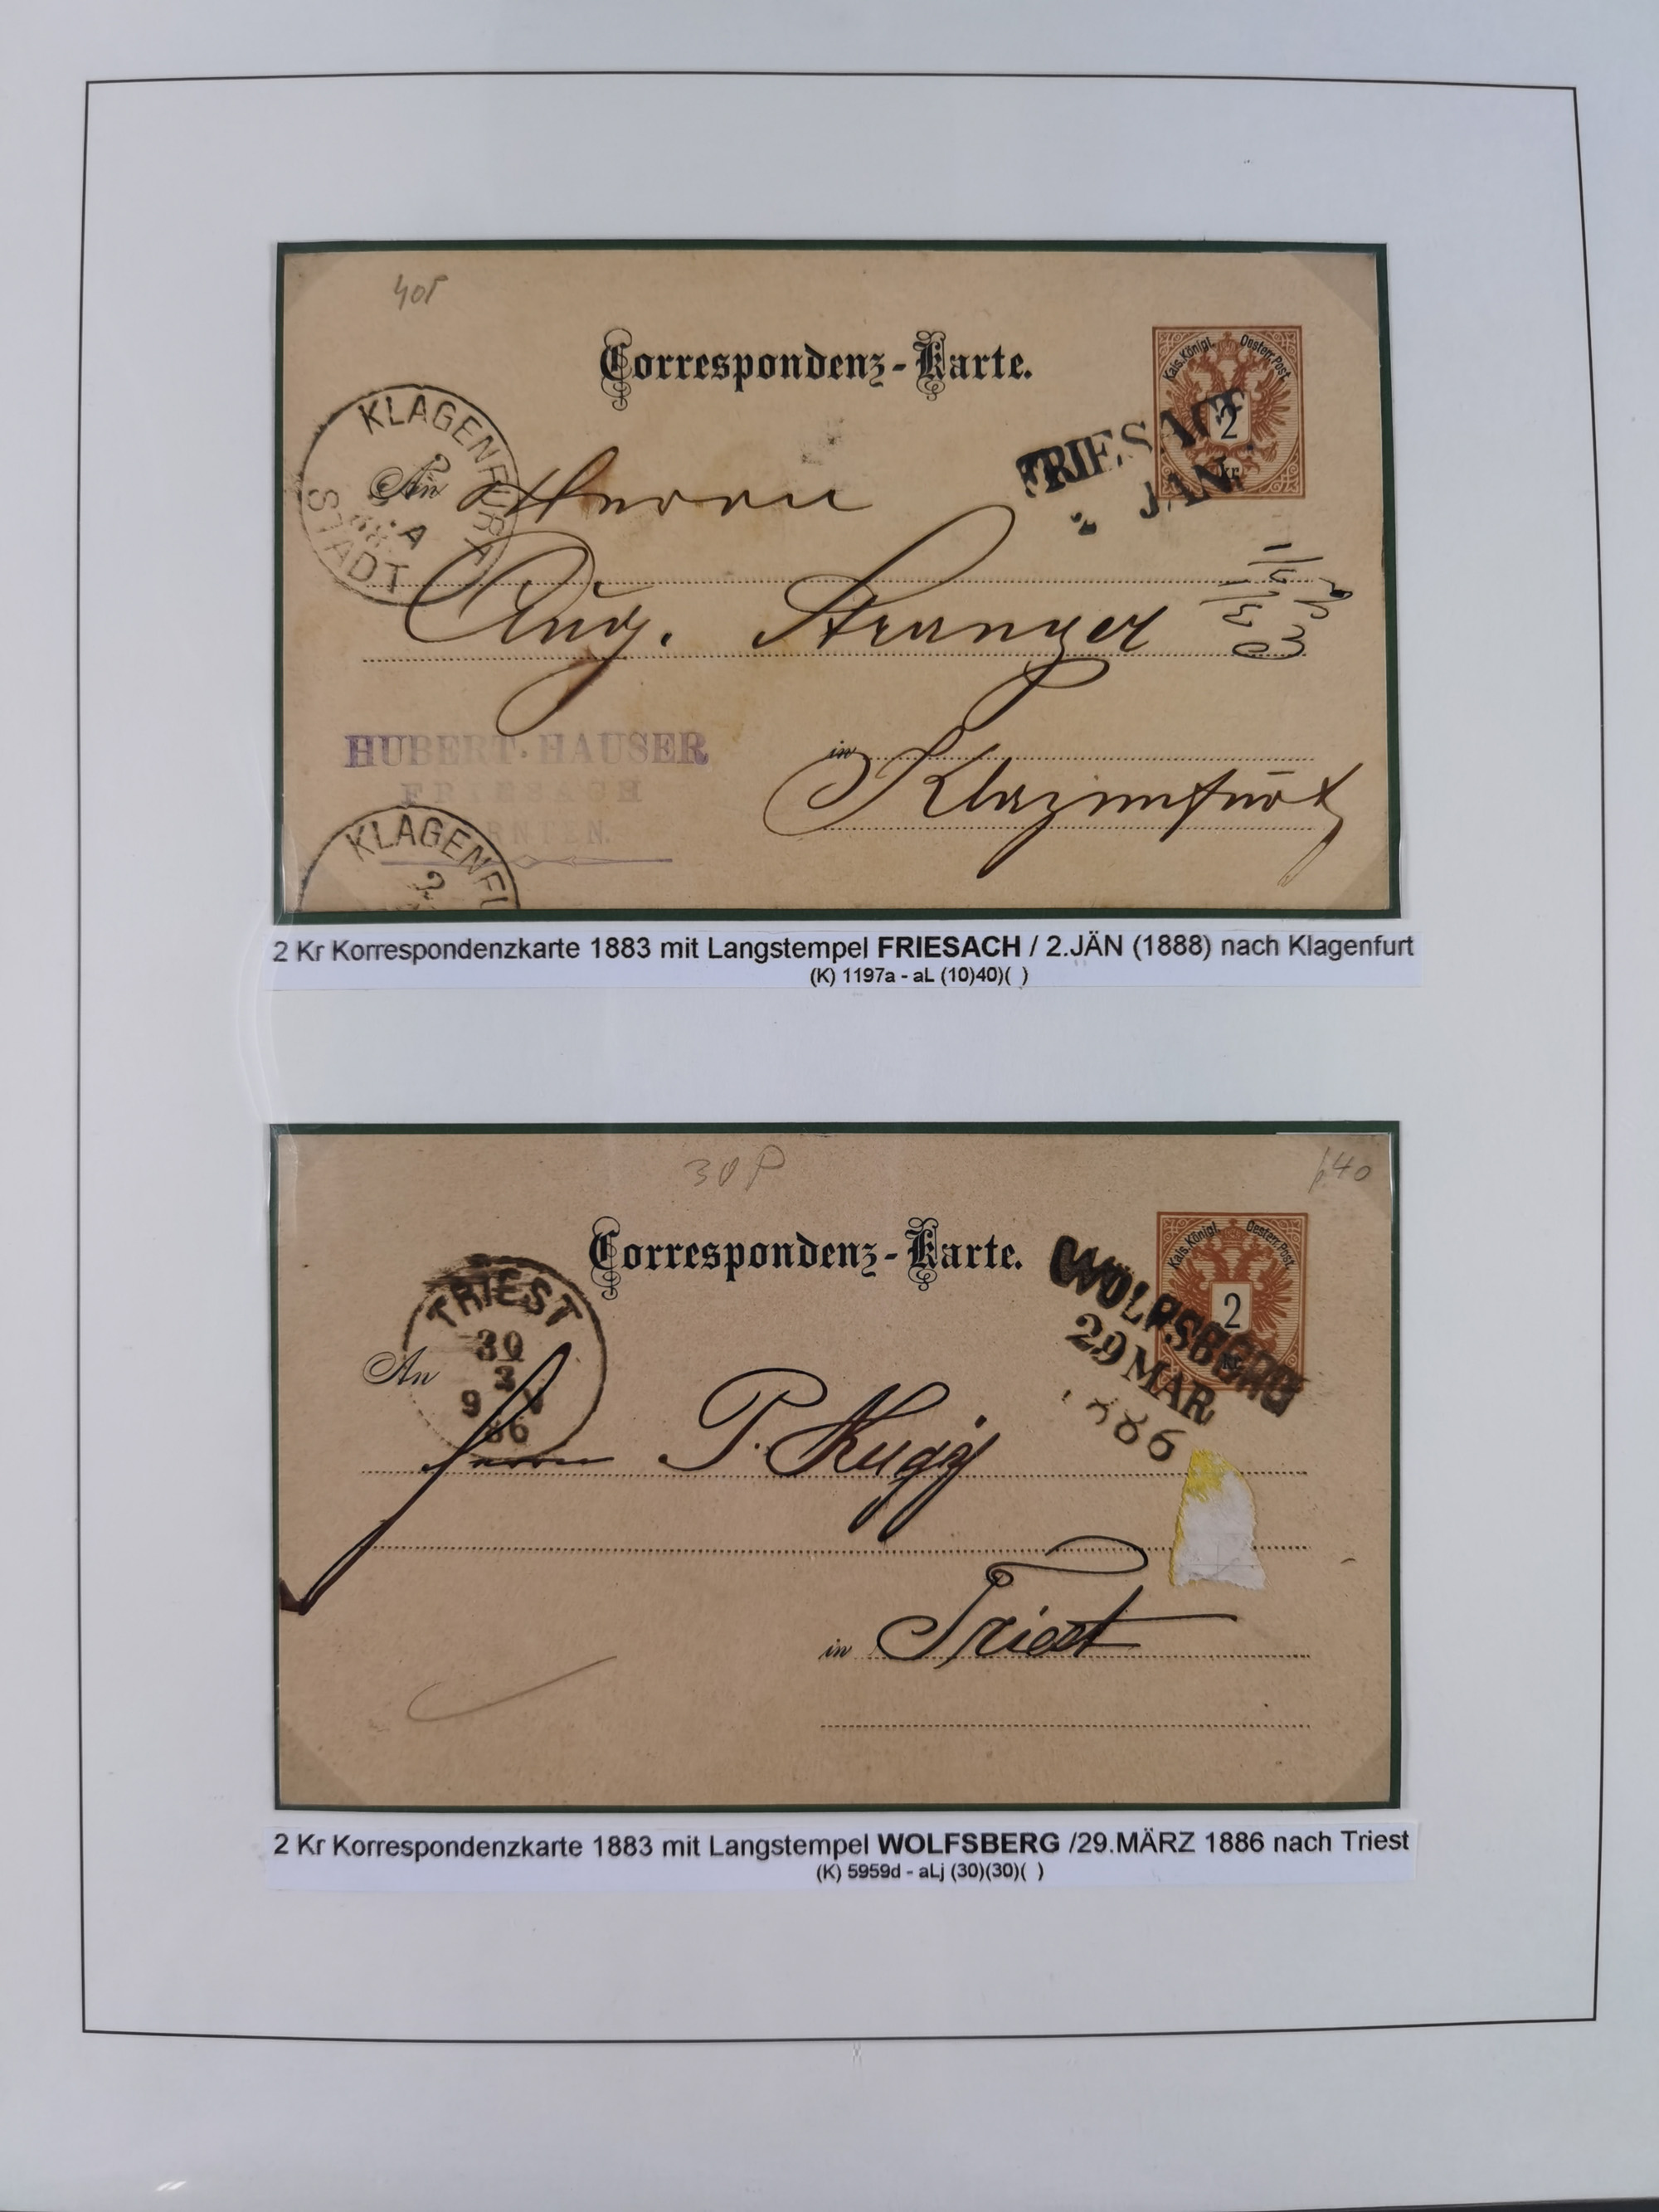 40P
Correspondenz-Karte.
Kais. Königl. Oesterr. Post.
2
kr.
FRIESACH
2 JAN.
KLAGENFURT
STADT
A
88
An Herrn
Aug. Stranger
HUBERT HAUSER
FRIESACH
KÄRNTEN.
in Klagenfurt
KLAGENFU
2
2 Kr Korrespondenzkarte 1883 mit Langstempel FRIESACH / 2.JÄN (1888) nach Klagenfurt
(K) 1197a - aL (10)40)( )
30P
640
Correspondenz-Karte.
Kais. Königl. Oesterr. Post.
2
kr.
WOLFSBERG
29 MAR
1886
TRIEST
30
3
9 V
86
An
Herrn P. Kugy
in Triest
2 Kr Korrespondenzkarte 1883 mit Langstempel WOLFSBERG /29.MÄRZ 1886 nach Triest
(K) 5959d - aLj (30)(30)( )